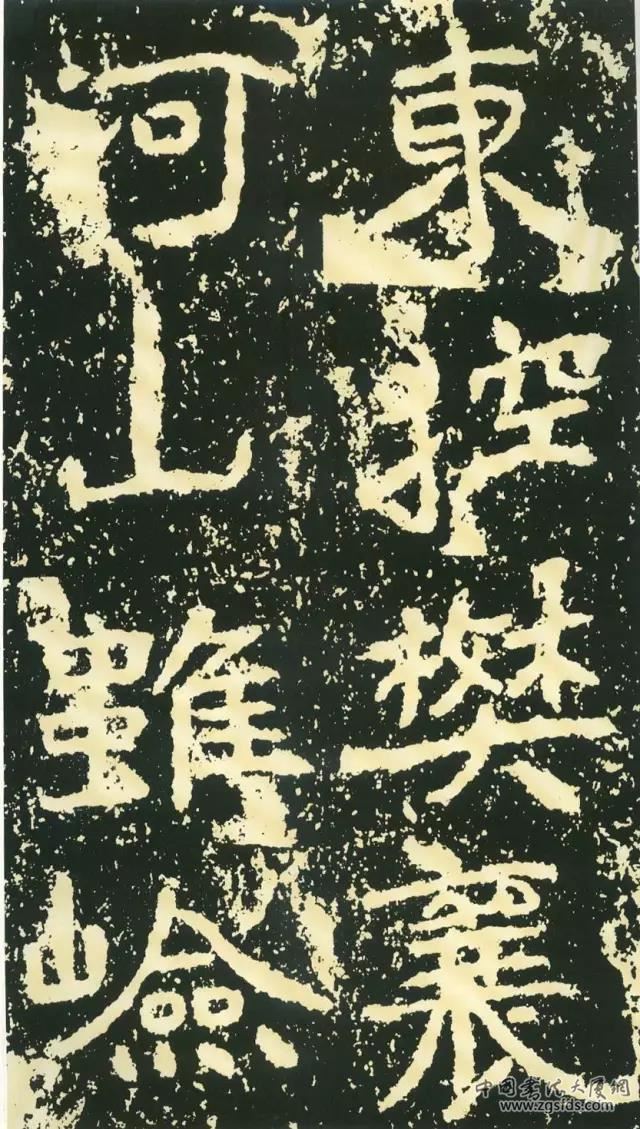 東控樊襄
河山雖嶮
中国书法大厦網
www.zgsfds.com